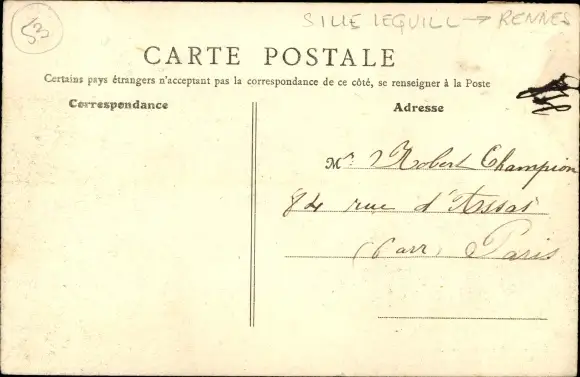 SILLE LEGUILL → RENNES
CARTE POSTALE
Certains pays étrangers n'acceptant pas la correspondance de ce côté, se renseigner à la Poste
Correspondance
Adresse
Mr. Robert Champion
84 rue d'Assas
Paris